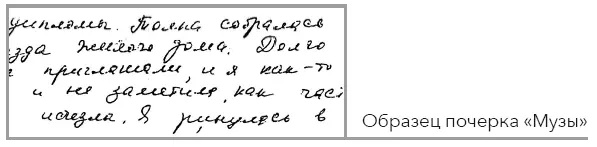 дипломы. Толпа собралась
езда жилого дома. Долго
приглашали, и я как-то
и не заметила, как час
исчезла. Я ринулась в
Образец почерка «Музы»